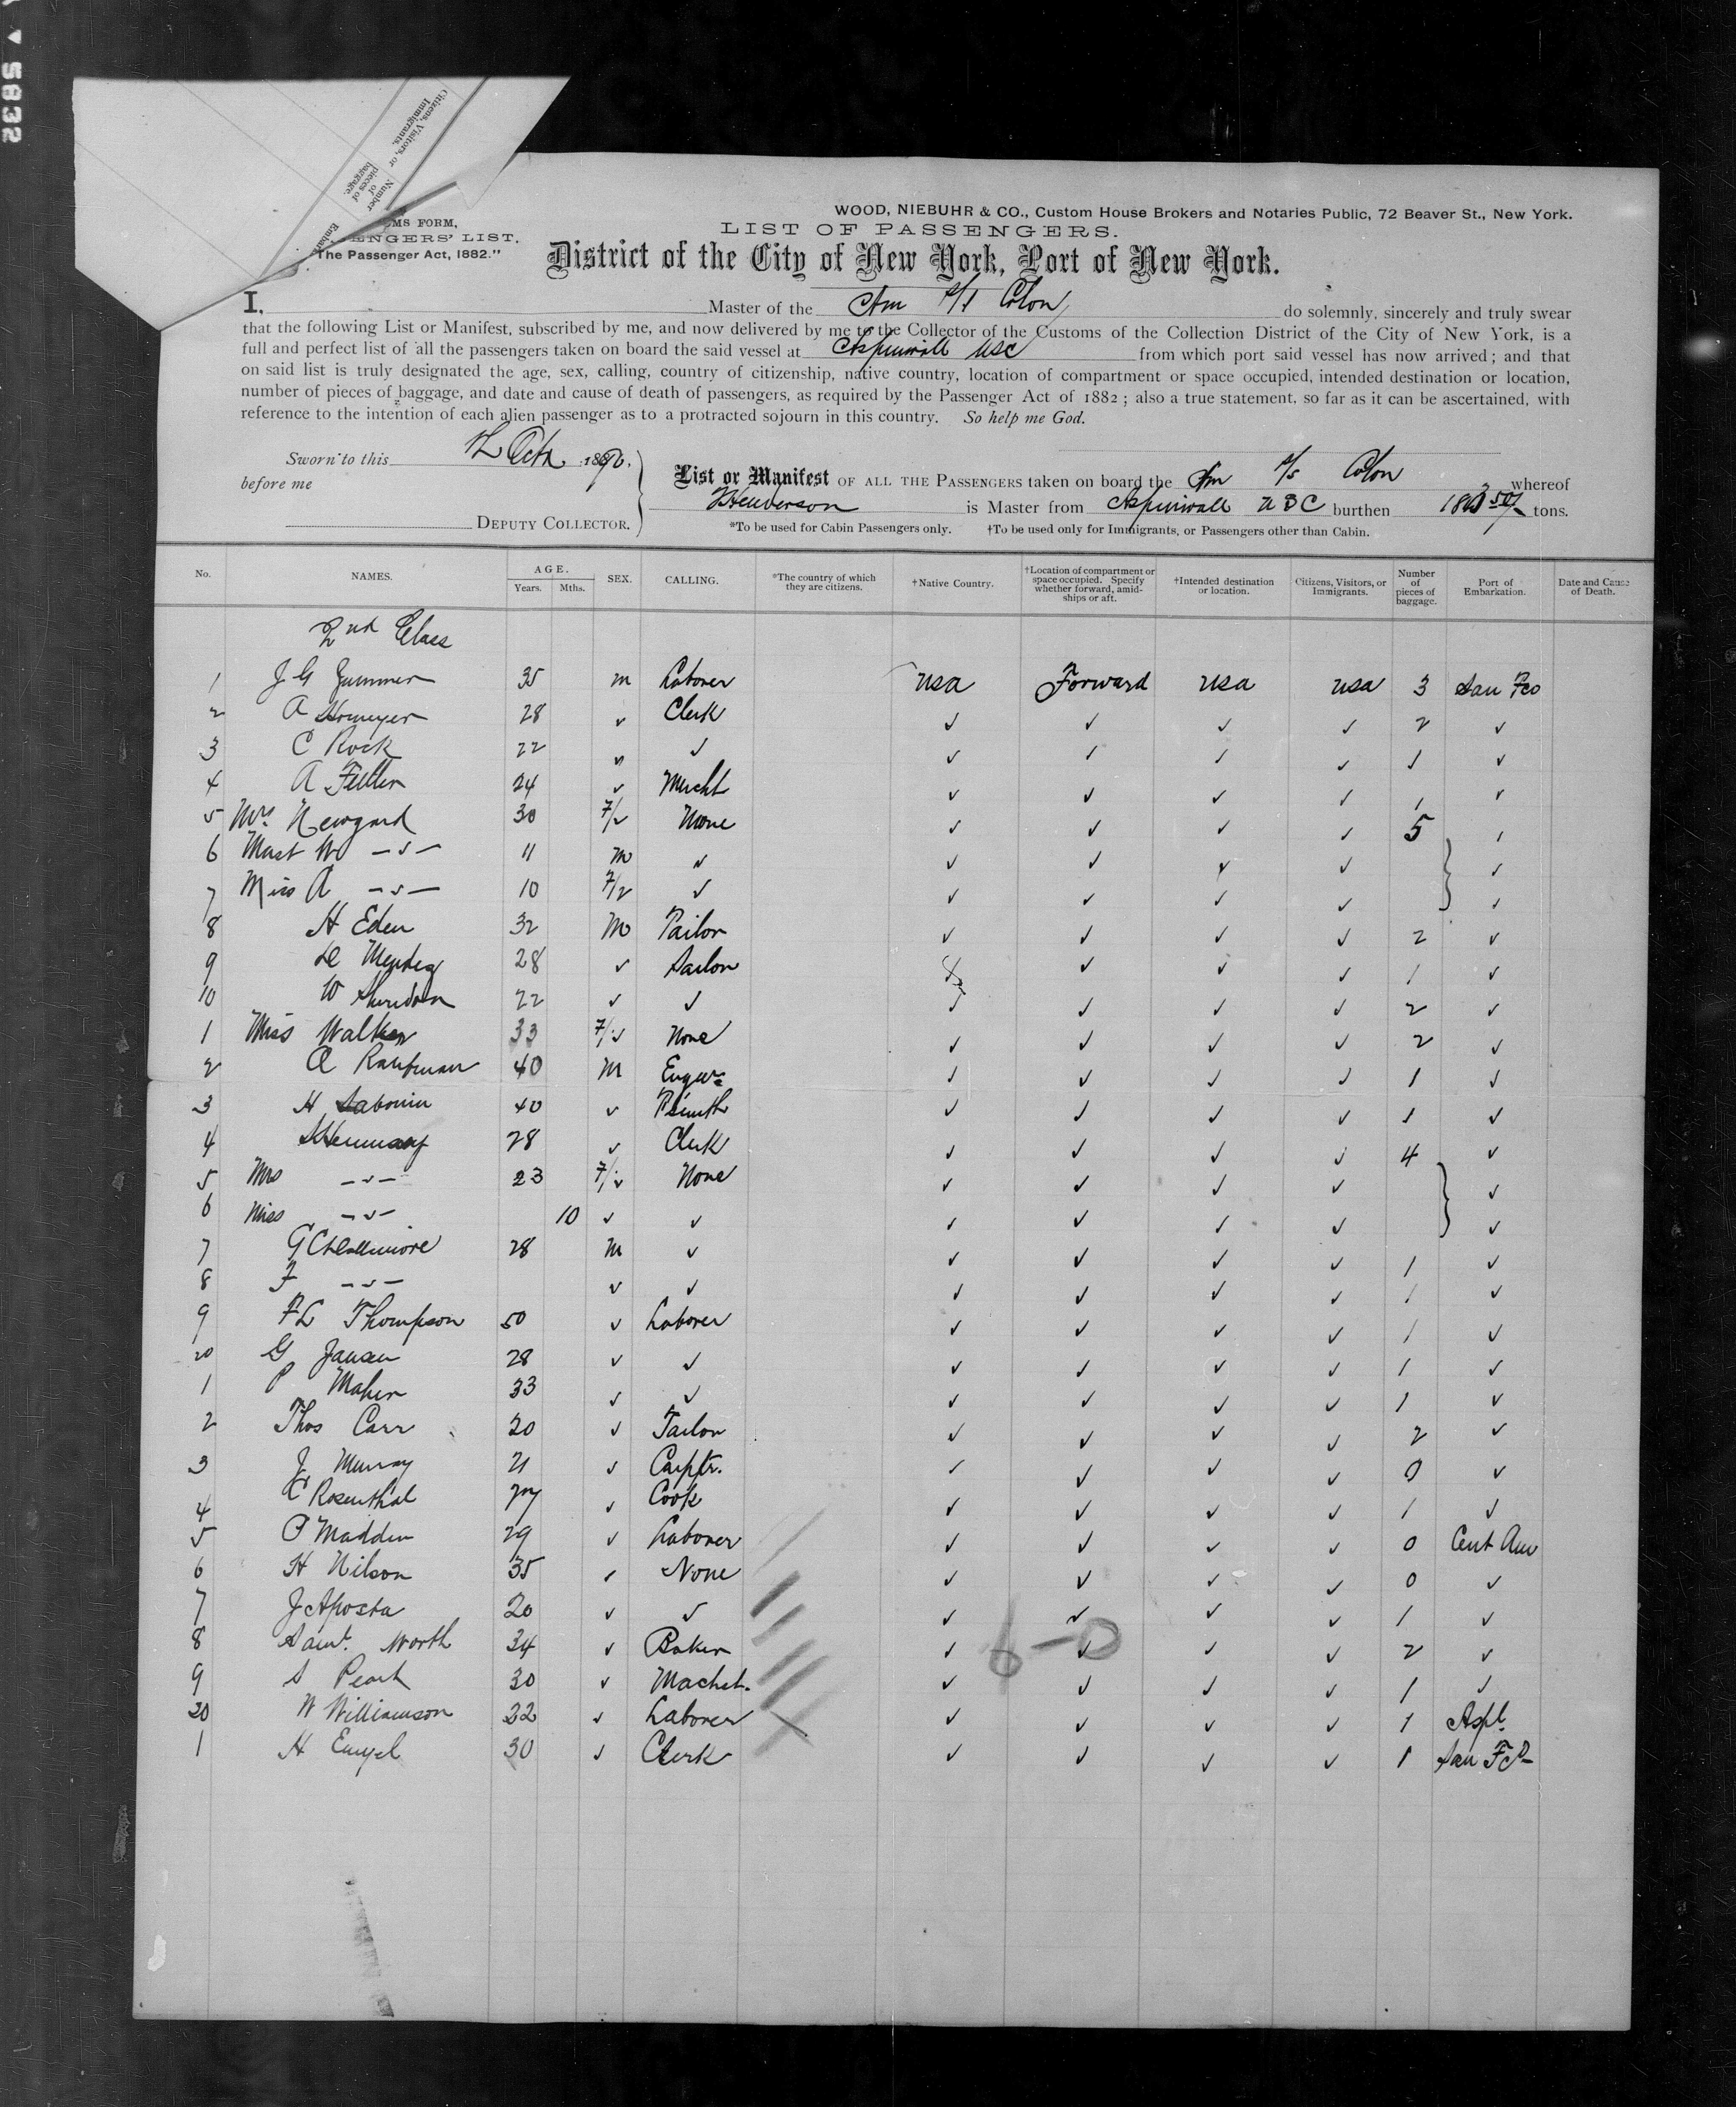 5832
Citizens, Visitors, or
Immigrants.
Number
of
pieces of
baggage.
WOOD, NIEBUHR & CO., Custom House Brokers and Notaries Public, 72 Beaver St., New York.
OMS FORM,
ENGERS' LIST.
The Passenger Act, 1882."
LIST OF PASSENGERS.
District of the City of New York, Port of New York.
I, Master of the Am s/s Colon do solemnly, sincerely and truly swear
that the following List or Manifest, subscribed by me, and now delivered by me to the Collector of the Customs of the Collection District of the City of New York, is a
full and perfect list of all the passengers taken on board the said vessel at Aspinwall USC from which port said vessel has now arrived; and that
on said list is truly designated the age, sex, calling, country of citizenship, native country, location of compartment or space occupied, intended destination or location,
number of pieces of baggage, and date and cause of death of passengers, as required by the Passenger Act of 1882; also a true statement, so far as it can be ascertained, with
reference to the intention of each alien passenger as to a protracted sojourn in this country. So help me God.
Sworn to this Octr 1890.
before me
DEPUTY COLLECTOR.
List or Manifest OF ALL THE PASSENGERS taken on board the Am s/s Colon whereof
Henderson is Master from Aspinwall USC burthen tons.
*To be used for Cabin Passengers only. †To be used only for Immigrants, or Passengers other than Cabin.
No. NAMES. AGE. Years. Mths. SEX. CALLING. *The country of which they are citizens. †Native Country. †Location of compartment or space occupied. Specify whether forward, amidships or aft. †Intended destination or location. Citizens, Visitors, or Immigrants. Number of pieces of baggage. Port of Embarkation. Date and Cause of Death.
2nd Class
1 J G 35 m Laborer USA Forward USA USA 3 San Fco
2 A 28 ✓ Clerk ✓ ✓ ✓ ✓ 2 ✓
3 C Rock 22 ✓ ✓ ✓ ✓ ✓ ✓ 1 ✓
4 A Fuller 24 ✓ Mercht ✓ ✓ ✓ ✓ 1 ✓
5 Mrs Newgard 30 F/✓ None ✓ ✓ ✓ ✓ 5 ✓
6 Mast W -✓- 11 m ✓ ✓ ✓ ✓ ✓ ✓
7 Miss A -✓- 10 F/✓ ✓ ✓ ✓ ✓ ✓ ✓
8 H Eden 32 M Tailor ✓ ✓ ✓ ✓ 2 ✓
9 28 ✓ Sailor ✓ ✓ ✓ 1 ✓
10 W Sheridan 22 ✓ ✓ ✓ ✓ ✓ ✓ 2 ✓
1 Miss Walker 33 F/✓ None ✓ ✓ ✓ ✓ 2 ✓
2 Kaufman 40 M Engnr ✓ ✓ ✓ ✓ 1 ✓
3 H Sabouin 40 ✓ Bsmith ✓ ✓ ✓ ✓ 1 ✓
4 28 ✓ Clerk ✓ ✓ ✓ ✓ 4 ✓
5 Mrs -✓- 23 F/✓ None ✓ ✓ ✓ ✓ ✓
6 Miss -✓- 10 ✓ ✓ ✓ ✓ ✓ ✓ ✓
7 G 28 M ✓ ✓ ✓ ✓ ✓ 1 ✓
8 F -✓- ✓ ✓ ✓ ✓ ✓ ✓ 1 ✓
9 F L Thompson 50 ✓ Laborer ✓ ✓ ✓ ✓ 1 ✓
20 G Jansen 28 ✓ ✓ ✓ ✓ ✓ ✓ 1 ✓
1 P Maher 33 ✓ ✓ ✓ ✓ ✓ ✓ 1 ✓
2 Thos Carr 20 ✓ Tailor ✓ ✓ ✓ ✓ 2 ✓
3 J Murray 21 ✓ Carptr. ✓ ✓ ✓ ✓ 0 ✓
4 C Rosenthal 27 ✓ Cook ✓ ✓ ✓ ✓ 1 ✓
5 P Madden 29 ✓ Laborer ✓ ✓ ✓ ✓ 0 Cent Am
6 H Nilson 35 ✓ None ✓ ✓ ✓ ✓ 0 ✓
7 J Aposta 20 ✓ ✓ ✓ ✓ ✓ ✓ 1 ✓
8 Saml. North 34 ✓ Baker ✓ ✓ ✓ ✓ 2 ✓
6-0
9 S Peart 30 ✓ Machst. ✓ ✓ ✓ ✓ 1 ✓
30 W Williamson 32 ✓ Laborer ✓ ✓ ✓ ✓ 1 Aspl.
1 H Engel 30 ✓ Clerk ✓ ✓ ✓ ✓ 1 San Fco